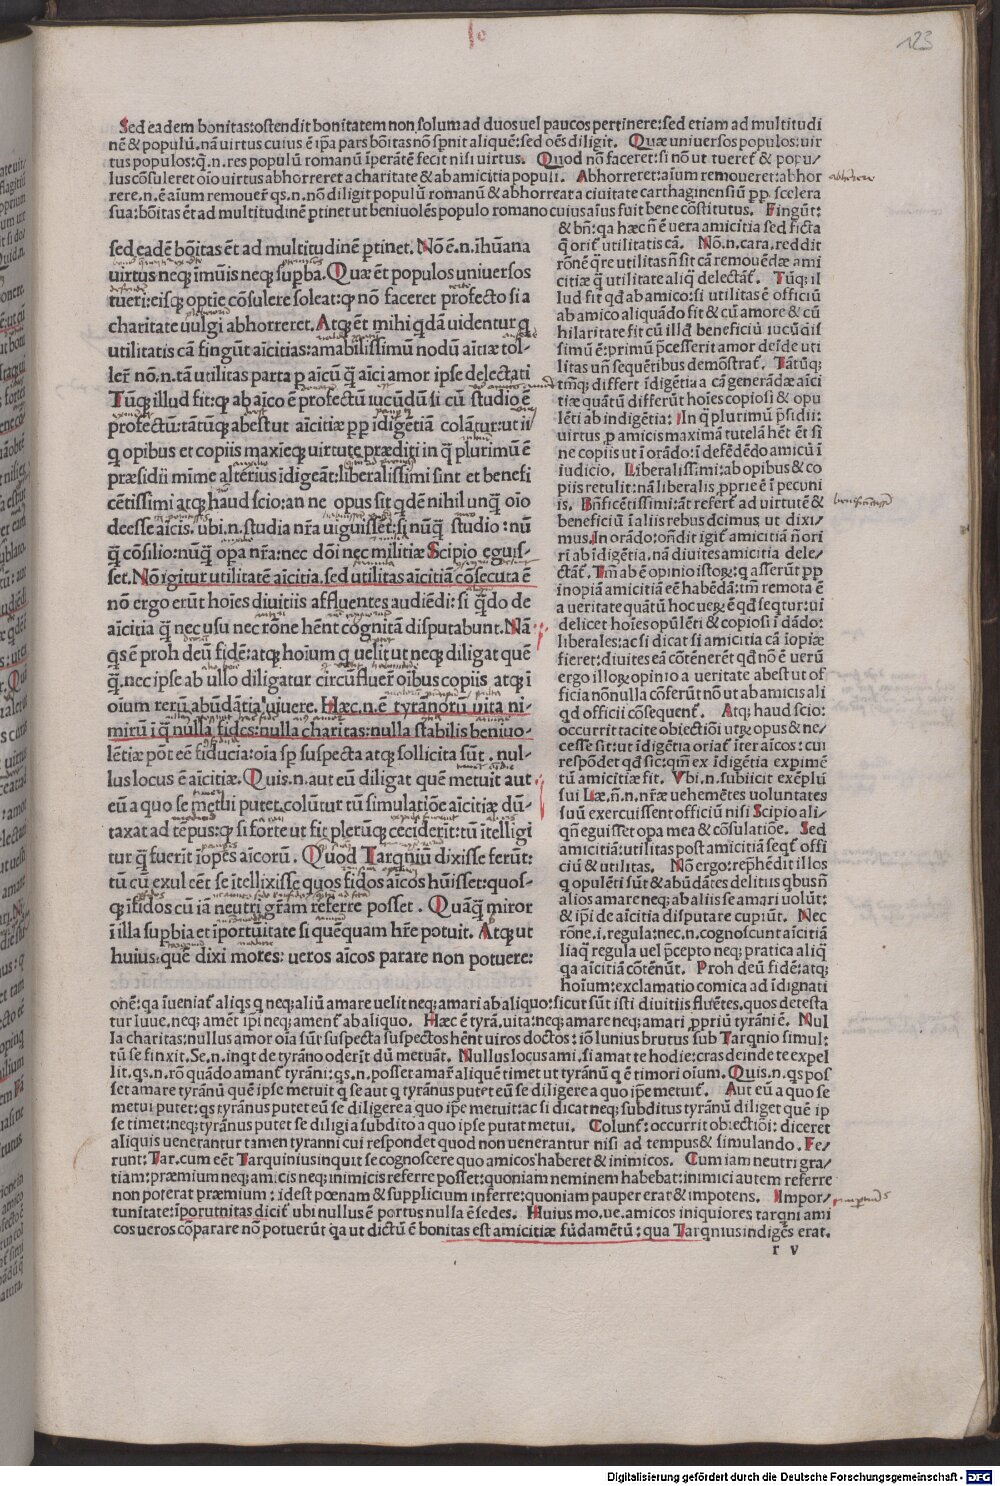 123
Sed eadem bonitas:ostendit bonitatem non solum ad duos uel paucos pertinere:sed etiam ad multitudi
nē & populū.nā uirtus cuius ē ip̄a pars bōitas nō spnit aliquē:sed oēs diligit. Quæ uniuersos populos:uir
tus populos:q̄.n.res populū romanū īperātē fecit nisi uirtus. Quod nō faceret:si nō ut tueret & popu/
lus cōsuleret oīo uirtus abhorreret a charitate & ab amicitia populi. Abhorreret:aīum remoueret:abhor
rere.n.ē aīum remouer qs.n.nō diligit populū romanū & abhorreat a ciuitate carthaginensiū pp scelera
sua:bōitas ēt ad multitudinē ptinet ut beniuolēs populo romano cuius aīus fuit bene cōstitutus. Fingūt:
sed eadē bōitas ēt ad multitudinē ptinet. Nō ē.n.īhūana
uirtus neq; īmūis neq; supba. Quæ ēt populos uniuersos
tueri:eisq; optīe cōsulere soleat:q nō faceret profecto si a
charitate uulgi abhorreret. Atq; ēt mihi qdā uidentur q
utilitatis cā fingūt aīcitias:amabilissimū nodū aītiæ tol-
ler nō.n.tā utilitas parta p aīcū q̄ aīci amor ipse delectati
Tūq; illud fit:q ab aīco ē profectū iucūdū si cū studio ē
profectū:tātūq; abest ut aīcitiæ pp īdigētiā colātur:ut ii
q opibus et copiis maxīeq; uirtute præditi in q̄ plurimū ē
præsidii mīme alterius īdigeāt:liberalissimi sint et benefi
cētissimi atq; haud scio:an ne opus sit qdē nihil unq̄ oīo
deesse aīcis. ubi.n.studia nr̄a uiguissēt:si nūq̄ studio :nū
q̄ cōsilio:nūq̄ opa nr̄a:nec dōi nec militiæ Scipio eguis-
set. Nō igitur utilitatē aīcitia.sed utilitas aīcitiā cōsecuta ē
nō ergo erūt hoīes diuitiis affluentes audiēdi:si q̄do de
aīcitia q̄ nec usu nec rōne hēnt cognitā disputabunt. Nā
qs ē proh deū fidē:atq; hoīum q uelit ut neq; diligat quē
q̄.nec ipse ab ullo diligatur circūfluer oībus copiis atq; ī
oīum rerū abūdātia uiuere. Hæc.n.ē tyrānorū uita ni-
mirū ī q nulla fides:nulla charitas:nulla stabilis beniuo-
lētiæ pōt eē fiducia:oīa sp suspecta atq; sollicita sūt . nul-
lus locus ē aīcitiæ. Quis.n.aut eū diligat quē metuit aut
eū a quo se metui putet.colūtur tū simulatiōe aīcitiæ dū-
taxat ad tēpus:q si forte ut fit plerūq; ceciderīt:tū ītelligi
tur q̄ fuerīt īopes aīcorū. Quod Tarqniū dixisse ferūt:
tū cū exul eēt se ītellixisse quos fidos aīcos hūisset:quos-
q; īfidos cū iā neutri gr̄am referre posset . Quāq̄ miror
ī illa supbia et īportūitate si quēquam hr̄e potuit. Atq; ut
huius:quē dixi mores: ueros aīcos parare non potuere:
& bn̄:qa hæc n̄ ē uera amicitia sed ficta
q̄ orit utilitatis cā. Nō.n.cara.reddit
rōnē q̄re utilitas n̄ sit cā remouēdæ ami
citiæ q̄ utilitate aliq̄ delectat. Tūq; il
lud fit qd ab amico:si utilitas ē officiū
ab amico aliquādo fit & cū amore & cū
hilaritate fit cū illd beneficiū iucūdis
simū ē:primū p̄cesserit amor deīde uti
litas un̄ sequētibus demōstrat. Tātūq;
tm̄q; differt īdigētia a cā generādæ aīci
tiæ quātū differūt hoīes copiosi & opu
lēti ab indigētia: In q̄ plurimū p̄sidii:
uirtus p amicis maximā tutelā hēt ēt sī
ne copiis ut ī orādo:ī defēdēdo amicū ī
iudicio. Liberalissimi:ab opibus & co
piis retulit:nā liberalis pprie ē ī pecuni
is. Bn̄ficētissimi:āt refert ad uirtutē &
beneficiū ī aliis rebus dcīmus ut dixi/
mus.In orādo:on̄dit igit amicitiā n̄ ori
ri ab īdigētia.nā diuites amicitia dele/
ctāt. Tm̄ ab ē opinio istoꝝ:q asserūt pp
īnopiā amicitiā eē habēdā:tm̄ remota ē
a ueritate quātū hoc ueꝝ ē qd seqtur:ui
delicet hoīes opulēti & copiosi ī dādo:
liberales:ac si dicat si amicitia cā īopiæ
fieret:diuites eā cōtēnerēt qd nō ē uerū
ergo illoꝝ opinio a ueritate abest ut of
ficia nō nulla cōferūt nō ut ab amicis ali
qd officii cōsequent. Atq; haud scio:
occurrit tacite obiectiōi utꝝ opus & ne/
cesse sit:ut īdigētia oriat īter aīcos: cui
respōdet qd sic:qm̄ ex īdigētia expimē
tū amicitiæ fit. Vbi.n.subiicit exēplū
sui Læ.n̄.n.nr̄æ uehemētes uoluntates
suū exercuissent officiū nisi Scipio ali/
qn̄ eguisset opa mea & cōsulatiōe. Sed
amicitiā:utilitas post amicitiā seqt offi
ciū & utilitas. Nō ergo:rep̄hēdit illos
q opulēti sūt & abūdātes delitiis qbus n̄
alios amare neq; ab aliis se amari uolūt:
& ip̄i de aīcitia disputare cupiūt. Nec
rōne.i.regula:nec.n.cognoscunt aīcitiā
aliqua regula uel p̄cepto neq; pratica aliq̄
qa aīcitiā cōtēnūt. Proh deū fidē:atq;
hoīum:exclamatio comica ad īdignati
onē:qa īueniat aliqs q neq; aliū amare uelit neq; amari ab aliquo:sicut sūt isti diuitiis fluētes.quos detesta
tur Iuue.neq; amēt ip̄i neq; ament ab aliquo. Hæc ē tyrā.uita:neq; amare neq; amari ppriū tyrāni ē. Nul
la charitas:nullus amor oīa sūt suspecta suspectos hēnt uiros doctos: iō Iunius brutus sub Tarqnio simul:
tū se finxit.Se.n.inqt de tyrāno oderīt dū metuāt. Nullus locus ami.si amat te hodie:cras deinde te expel
lit.qs.n.rō quādo amant tyrāni:qs.n.posset amar aliquē timet ut tyrānū q ē timori oīum. Quis.n.qs pos
set amare tyrānū quē ipse metuit q se aut q tyrānus putet eū se diligere a quo ip̄e metuit. Aut eū a quo se
metui putet:qs tyrānus putet eū se diligi a quo ip̄e metuit:ac si dicat neq; subditus tyrānū diliget quē ip
se timet:neq; tyrānus putet se diligi a subdito a quo ipse putat metui. Colunt:occurrit obiectiōi: diceret
aliquis uenerantur tamen tyranni cui respondet quod non uenerantur nisi ad tempus & simulando. Fe-
runt:Tar.cum eēt Tarquinius inquit se cognoscere quo amicos haberet & inimicos. Cum iam neutri gra/
tiam:præmium neq; amicis neq; inimicis referre posset:quoniam neminem habebat:inimici autem referre
non poterat præmium : idest pœnam & supplicium inferre:quoniam pauper erat & impotens. Impor/
tunitate:īporutnitas dicit ubi nullus ē portus nulla ē sedes. Huius mo.ue.amicos iniquiores tarqni ami
cos ueros cōparare nō potuerūt qa ut dictū ē bonitas est amicitiæ fūdamētū : qua Tarqnius indigēs erat.
r v
Digitalisierung gefördert durch die Deutsche Forschungsgemeinschaft - DFG